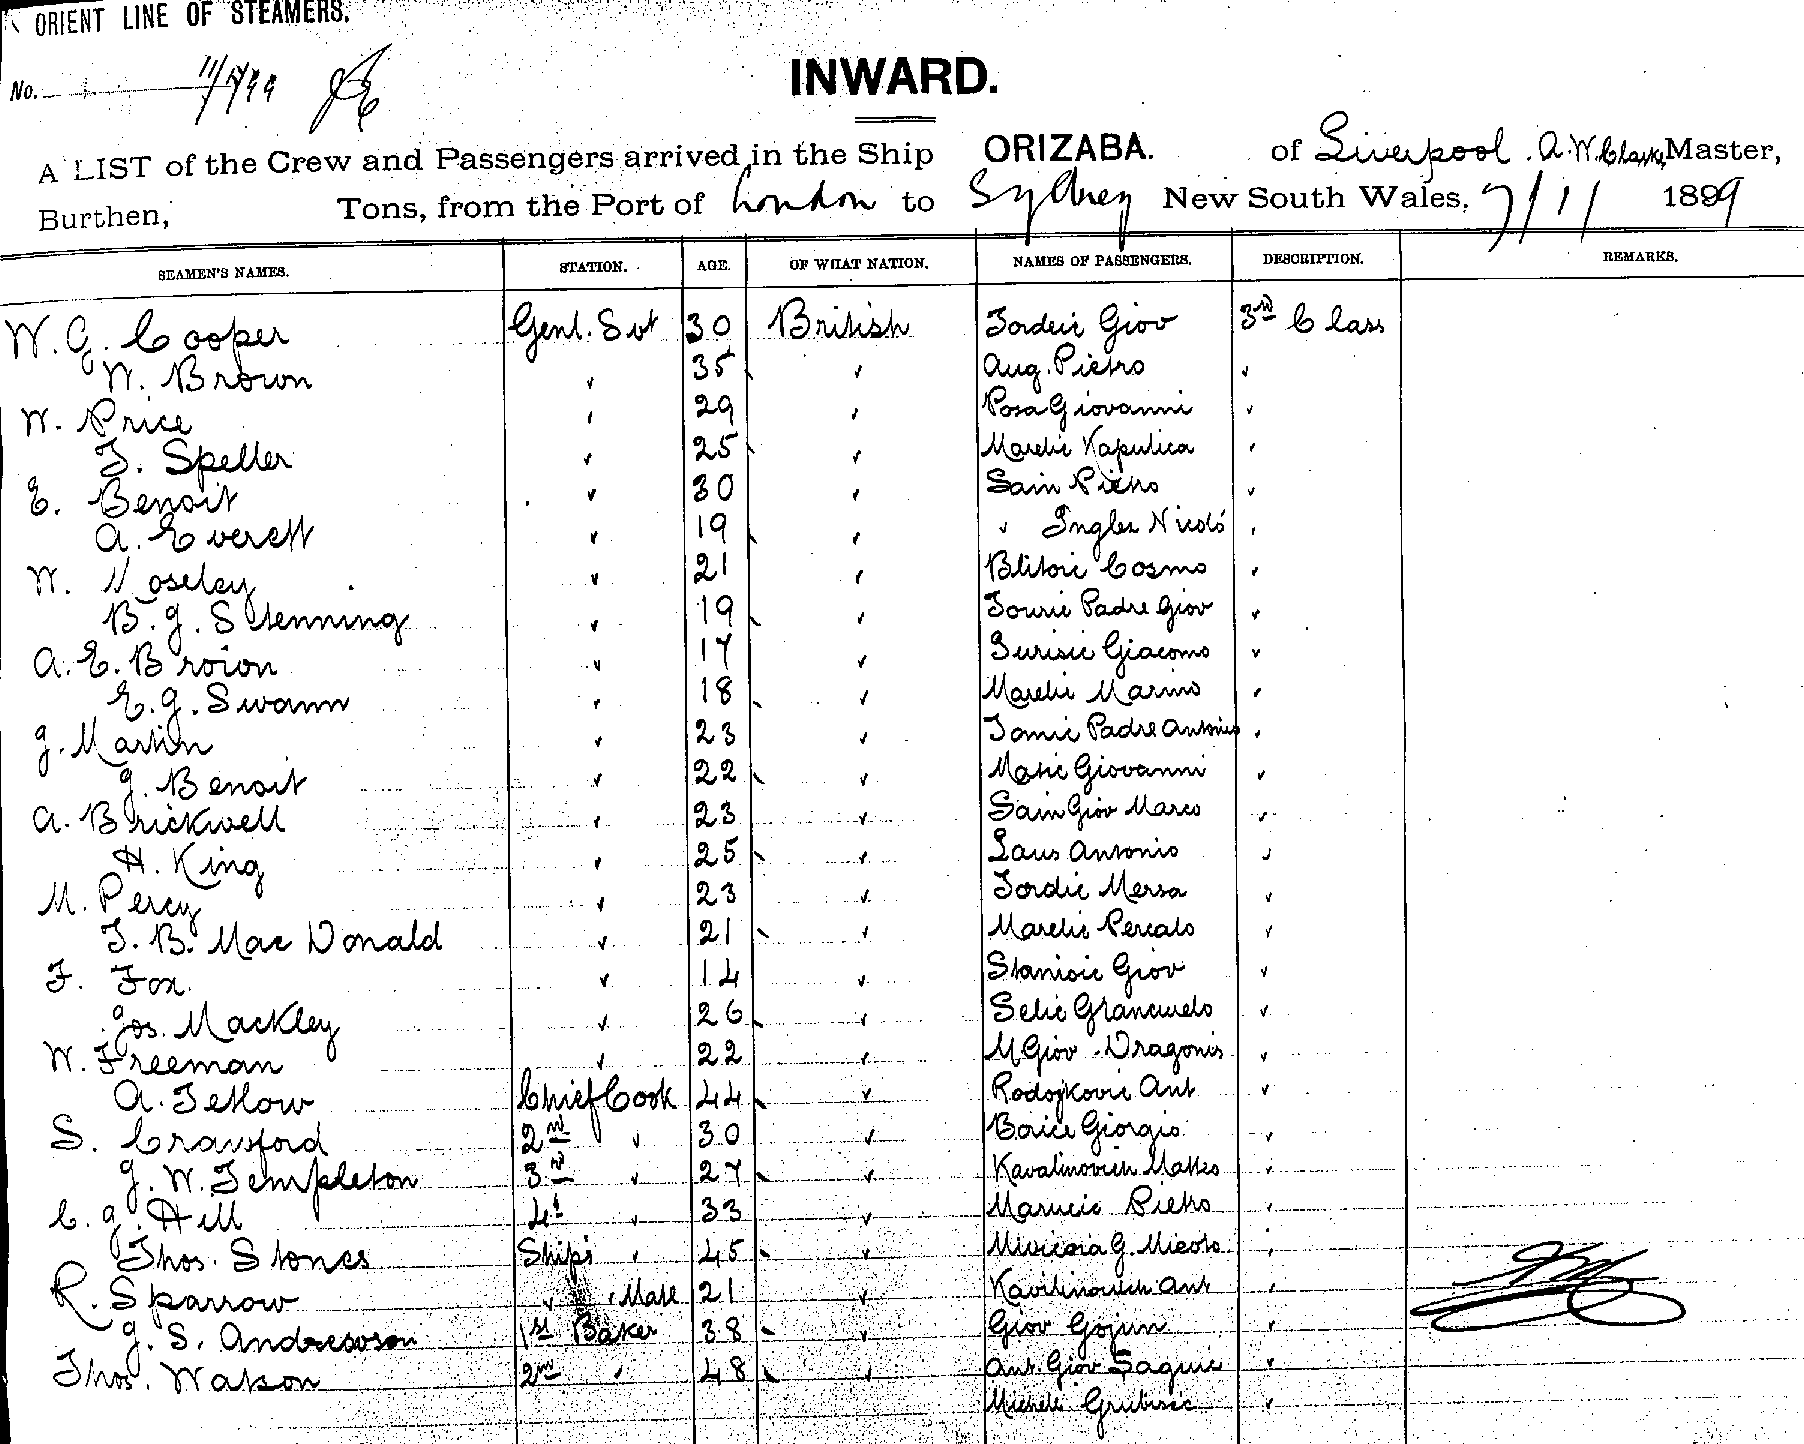 ORIENT LINE OF STEAMERS.
No. 11/99
INWARD.
A LIST of the Crew and Passengers arrived in the Ship ORIZABA. of Liverpool. A. W. Clarke, Master,
Burthen, Tons, from the Port of London to Sydney New South Wales, 7/11 1899
SEAMEN'S NAMES. STATION. AGE. OF WHAT NATION. NAMES OF PASSENGERS. DESCRIPTION. REMARKS.
W. G. Cooper Genl. Svt 30 British Giov 3rd Class
W. Brown " 35 " Aug. Pietro "
W. Price " 29 " Posa Giovanni "
T. Speller " 25 " Marelic Kapulica "
E. Benoit " 30 " Sain Pietro "
A. Everett " 19 " " Ingles Nicoló "
W. " 21 " Cosmo "
B. J. Stenning " 19 " Padre Giov "
A. E. Brown " 17 " Jurisic Giacomo "
E. G. Swann " 18 " Marelic Marino "
J. Martin " 23 " Tomic Padre Antonio "
J. Benoit " 22 " Matic Giovanni "
A. Brickwell " 23 " Sain Giov Marco "
H. King " 25 " Laus Antonio "
M. Percy " 23 " Mersa "
T. B. Mac Donald " 21 " Marelic "
F. Fox " 14 " Stanisic Giov "
Jos. Mackley " 26 " Selic "
W. Freeman " 22 " M Giov Dragonis "
A. Tetlow Chief Cook 44 " Rodojkovic Ant "
S. Crawford 2nd " 30 " Giorgio "
J. W. Templeton 3rd " 27 " Kavalinovich Matteo "
C. J. Hill 4t " 33 " Marucic Pietro "
Thos. Stones Ships " 45 " G. "
R. Sparrow " " Mate 21 " Kavilinovich Ant "
J. S. Andrewson 1st Baker 38 " Giov Gojun "
Thos. Watson 2nd " 48 " Ant. Giov "
Michele Grubisic "